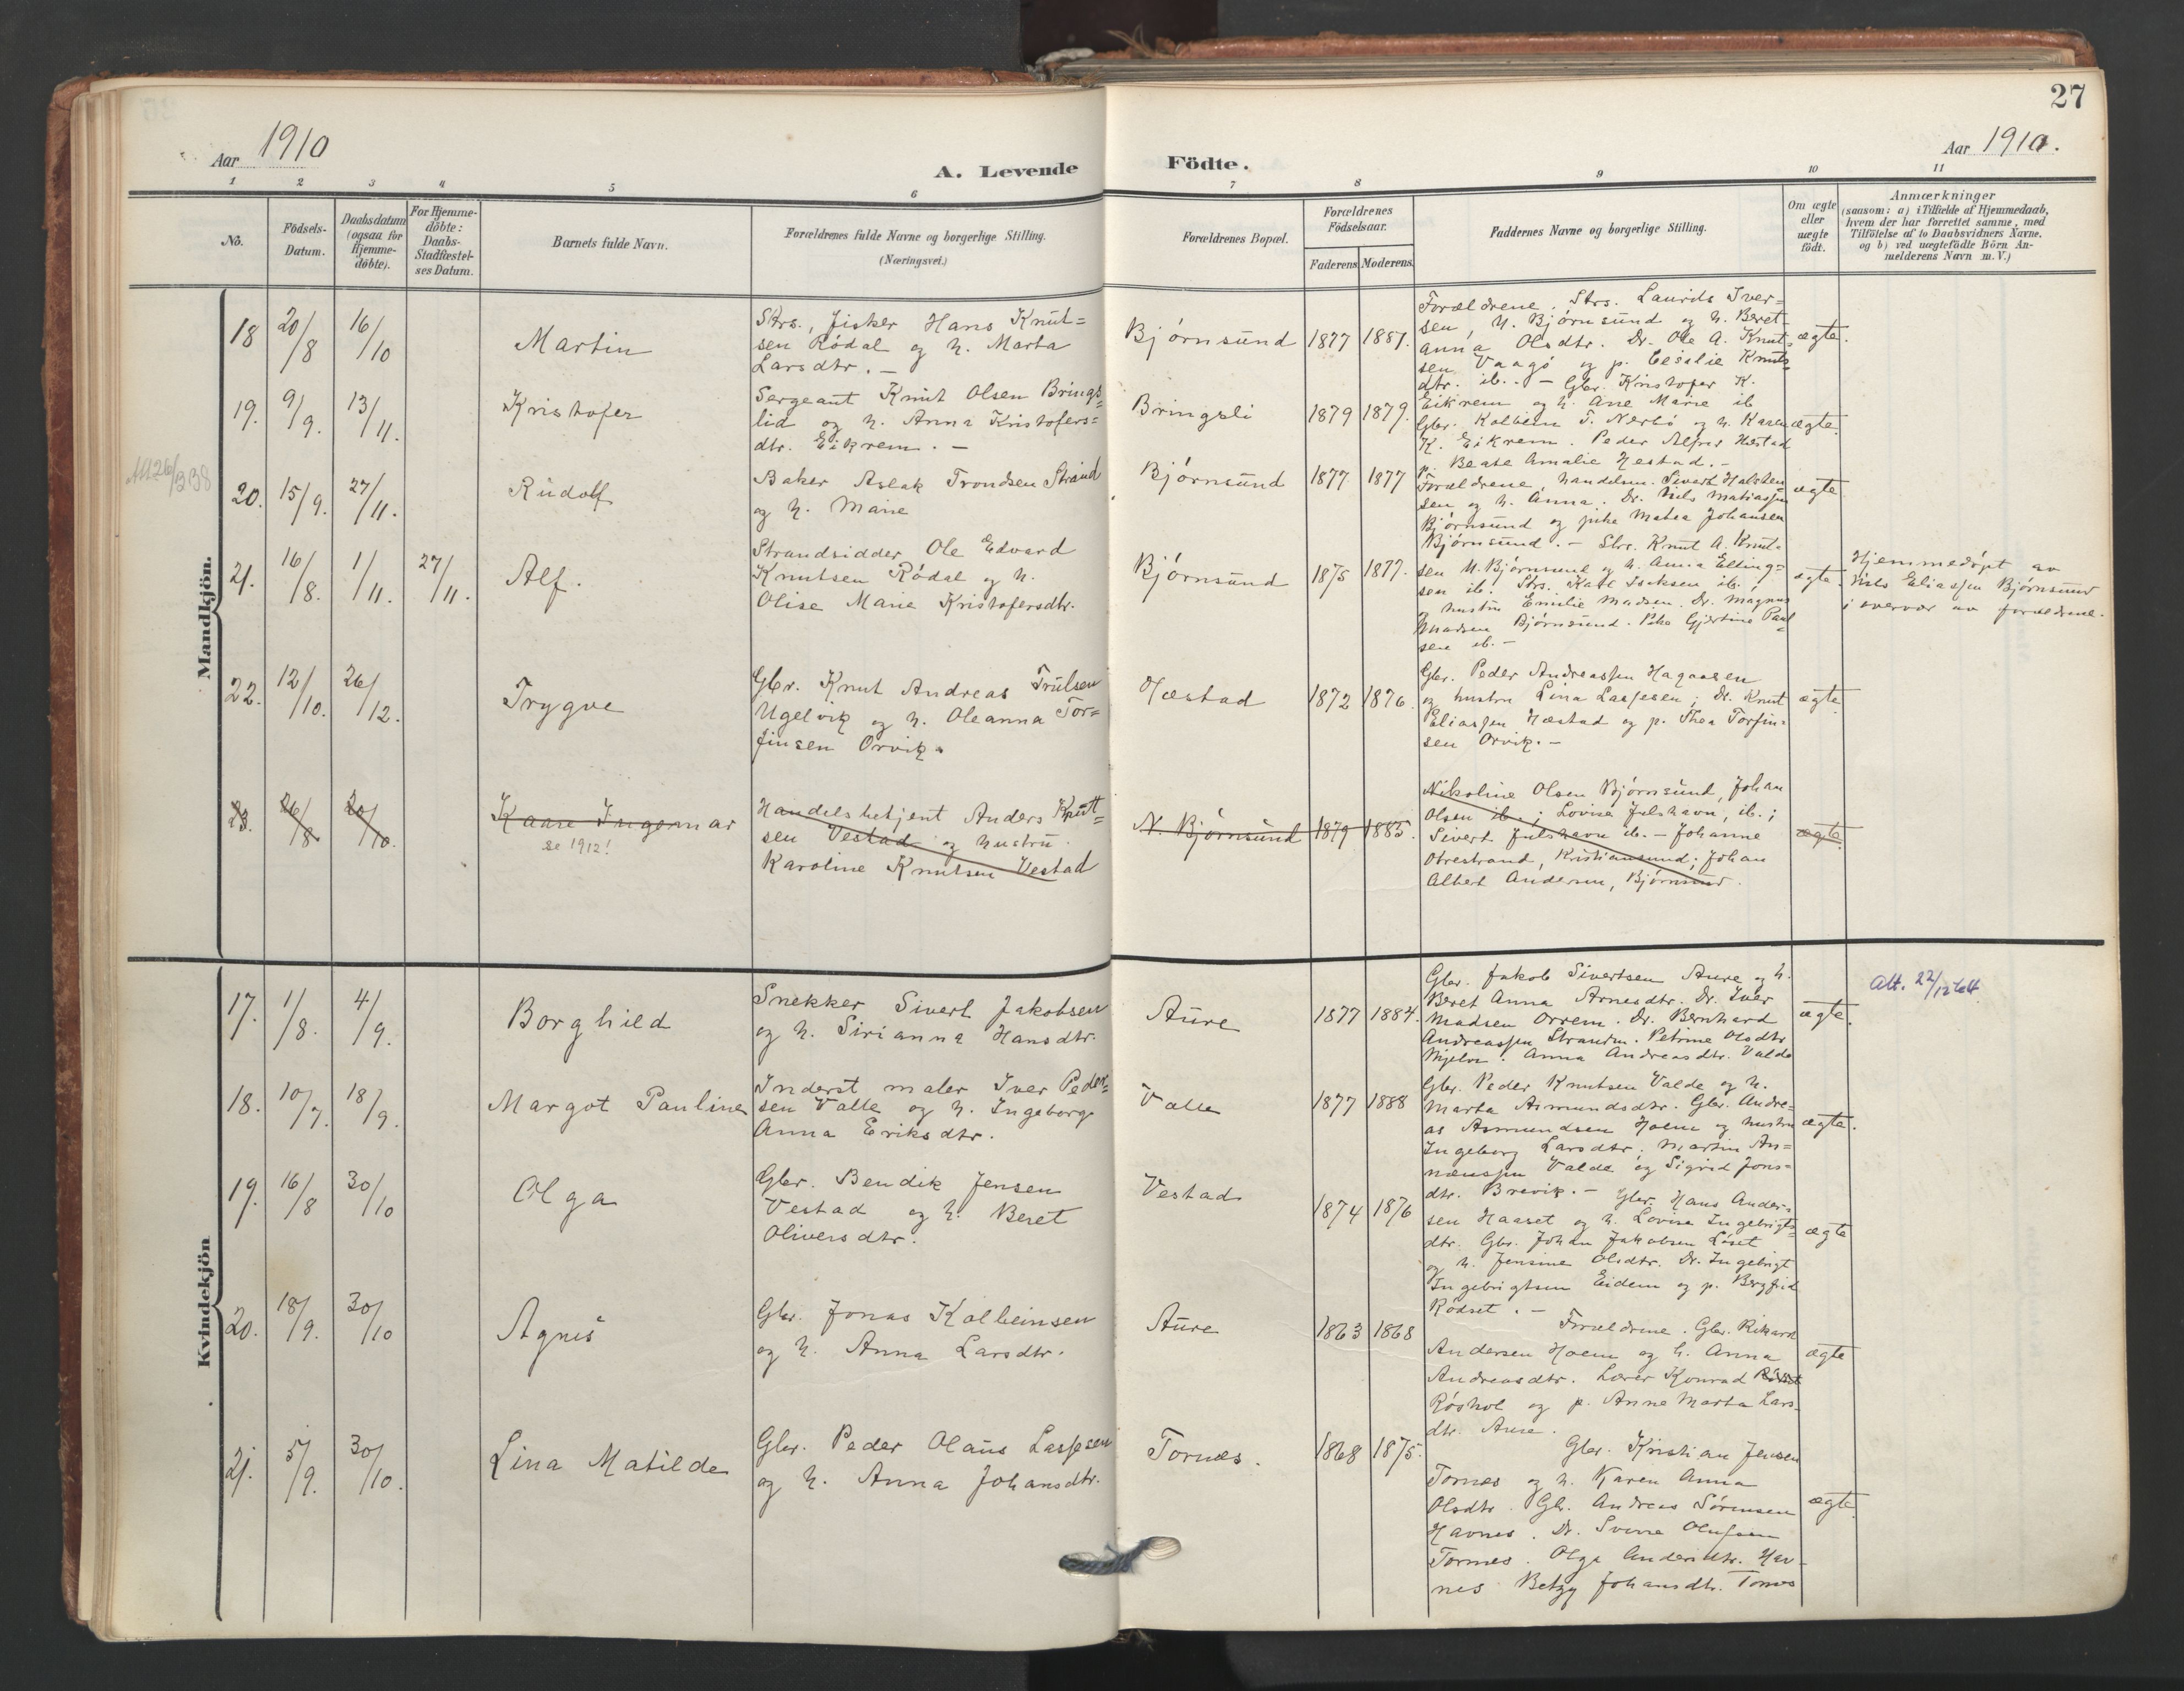 27
Aar 1910
A. Levende
Födte.
Aar 1910.
1 2 3 4 5 6 7 8 9 10 11
No.
Födsels-
Datum.
Daabsdatum
(ogsaa for
Hjemme-
döbte).
For Hjemme-
döbte:
Daabs-
Stadfæstel-
ses Datum.
Barnets fulde Navn.
Forældrenes fulde Navne og borgerlige Stilling.
(Næringsvei.)
Forældrenes Bopæl.
Forældrenes
Födselsaar.
Faderens Moderens.
Faddernes Navne og borgerlige Stilling.
Om ægte
eller
uægte
födt.
Anmærkninger
(saasom: a) i Tilfælde af Hjemmedaab,
hvem der har forrettet samme, med
Tilföielse af to Daabsvidners Navne,
og b) ved uægtefödte Börn An-
melderens Navn m. V.)
Mandkjön.
18 20/8 16/10
Martin
Strs., fisker Hans Knut=
sen Rödal og h. Marta
Larsdtr. -
Bjørnsund 1877 1881.
Forældrene. Strs. Laurids Iver=
sen, N. Bjørnsund og h. Beret
anna Olsdtr. Dr. Ole A. Knut=
sen Vaagø og p. Cecilie Knuts
dtr. ib. -
ægte.
19. 9/9. 13/11.
Kristofer
Sergeant Knut Olsen Brings=
lid og h. Anna Kristofers=
dtr. Eikrem. -
Bringsli 1879 1879.
Gbr. Kristofer K.
Eikrem og h. Ane Marie ib
Gbr. Kolbein T. Nerbø og h. Karen
K. Eikrem. Peder Alfred Hestad
p. Beate Amalie Hestad. -
ægte.
20. 15/9. 27/11.
Rudolf
Baker Aslak Trondsen Strand
og h. Marie
Bjørnsund 1877 1877
Forældrene, handelsm. Sivert Halsten
sen og h. Anna. Dr. Nils Matiassen
Bjørnsund og pike Matea Johansen
Bjørnsund. -
ægte
21. 16/8. 1/11. 27/11.
Alf.
Strandsidder Ole Edvard
Knutsen Rödal og h.
Olise Marie Kristofersdtr.
Bjørnsund 1875 1877.
Strs. Knut A. Knut=
sen N. Bjørnsund og h. Anna Elling=
sen ib. Strs. Karl Isaksen ib.
og hustru Emilie Madsen. Dr. Magnus
Madsen Bjørnsund. Pike Gjertine Paul
sen ib. -
ægte.
Hjemmedøpt av
Nils Eliassen Bjørnsund
i overvær av forældrene.
22. 12/10. 26/12.
Trygve
Gbr. Knut Andreas Trulsen
Ugelvik og h. Oleanna Tor=
finsen Orvik.
Hestad 1872 1876.
Gbr. Peder Andreassen Hagaasen
og hustru Lina Lassesen; Dr. Knut
Eliassen Hestad og p. Thea Torfin=
sen Orvik. -
ægte
23. 26/8 20/10.
Kaare Ingemar
se 1912!
Handelsbetjent Anders Knut=
sen Vestad og hustru
Karoline Knutsen Vestad
N. Bjørnsund 1879 1885.
Nikoline Olsen Bjørnsund, Johan
Olsen ib.; Lovise Julshavn, ib.;
Sivert Julshavn ib. - Johanne
Otrestrand, Kristiansund; Johan
Albert Andersen, Bjørnsund.
ægte.
Kvindekjön
17. 1/8. 4/9.
Borghild
Snekker Sivert Jakobsen
og h. Sirianna Hansdtr.
Aure 1877 1884.
Gbr. Jakob Sivertsen Aure og h.
Beret Anna Arnesdtr. Dr. Iver
Madsen Orrem. Dr. Bernhard
Andreassen Strand. Petrine Olsdtr
Mjelve. Anna Andreasdtr. Valde
ægte.
Att. 22/12
18. 10/7. 18/9.
Margot Pauline
Inderst maler Iver Peder=
sen Valle og h. Ingeborg
Anna Eriksdtr.
Valle 1877 1888
Gbr. Peder Knutsen Valde og h.
Marta Asmundsdtr. Gbr. Andre=
as Asmundsen Hoem og hustru
Ingeborg Larsdtr. Martin An=
Valde og Sigrid Jons=
dtr. Brevik. -
ægte.
19. 16/8 30/10
Olga
Gbr. Bendik Jensen
Vestad og h. Beret
Oliversdtr.
Vestad 1874 1876
Gbr. Hans Ander=
sen Haaset og h. Lovise Ingebrigts=
dtr. Gbr. Johan Jakobsen Løset
og h. Jensine Olsdtr. Dr. Ingebrigt
Ingebrigtsen Eidem og p. Bergfrid
Rødset. -
ægte
20. 18/9. 30/10
Agnes
Gbr. Jonas Kolbeinsen
og h. Anna Larsdtr.
Aure 1863 1868
Forældrene. Gbr. Rikard
Andersen Hoem og h. Anna
Andreasdtr. Lærer Konrad
Røshol og p. Anne Marta Lars=
dtr. Aure.
ægte
21. 5/9. 30/10.
Lina Matilde
Gbr. Peder Olaus Lassesen
og h. Anna Johansdtr.
Tornes. 1868 1875.
Gbr. Kristian Jensen
Tornes og h. Karen Anna
Olsdtr. Gb. Andreas Sørensen
Havnes. Dr. Sverre Olufsen
Tornes. Olga Andersdtr. Hav-
nes Betzy Johansdtr. Tornes
ægte.